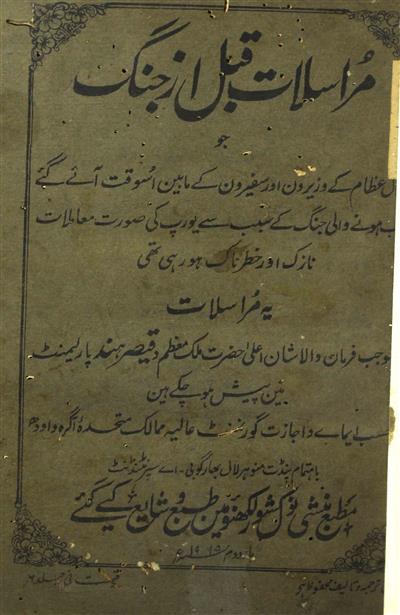 مُراسلات قبل از جنگ
جو
عظام کے وزیرون اور سفیرون کے مابین اسوقت آئے گئے
ہونے والی جنگ کے سبب سے یورپ کی صورت معاملات
نازک اور خطرناک ہو رہی تھی
یہ مُراسلات
فرمان والاشان اعلیٰ حضرت ملک معظم و قیصر ہند پارلیمنٹ
مین پیش ہو چکے ہین
ایماے و اجازت گورنمنٹ عالیہ ممالک متحدۂ آگرہ و اودھ
باہتمام پنڈت منوہر لال بھارگو بی۔اے سپرنٹنڈنٹ
مطبع منشی نولکشور لکھنؤ مین طبع و شایع کیے گئے
دوم ۱۹۱۵ء
ترجمہ و تالیف محفوظ ہے
قیمت فی جلد ۶